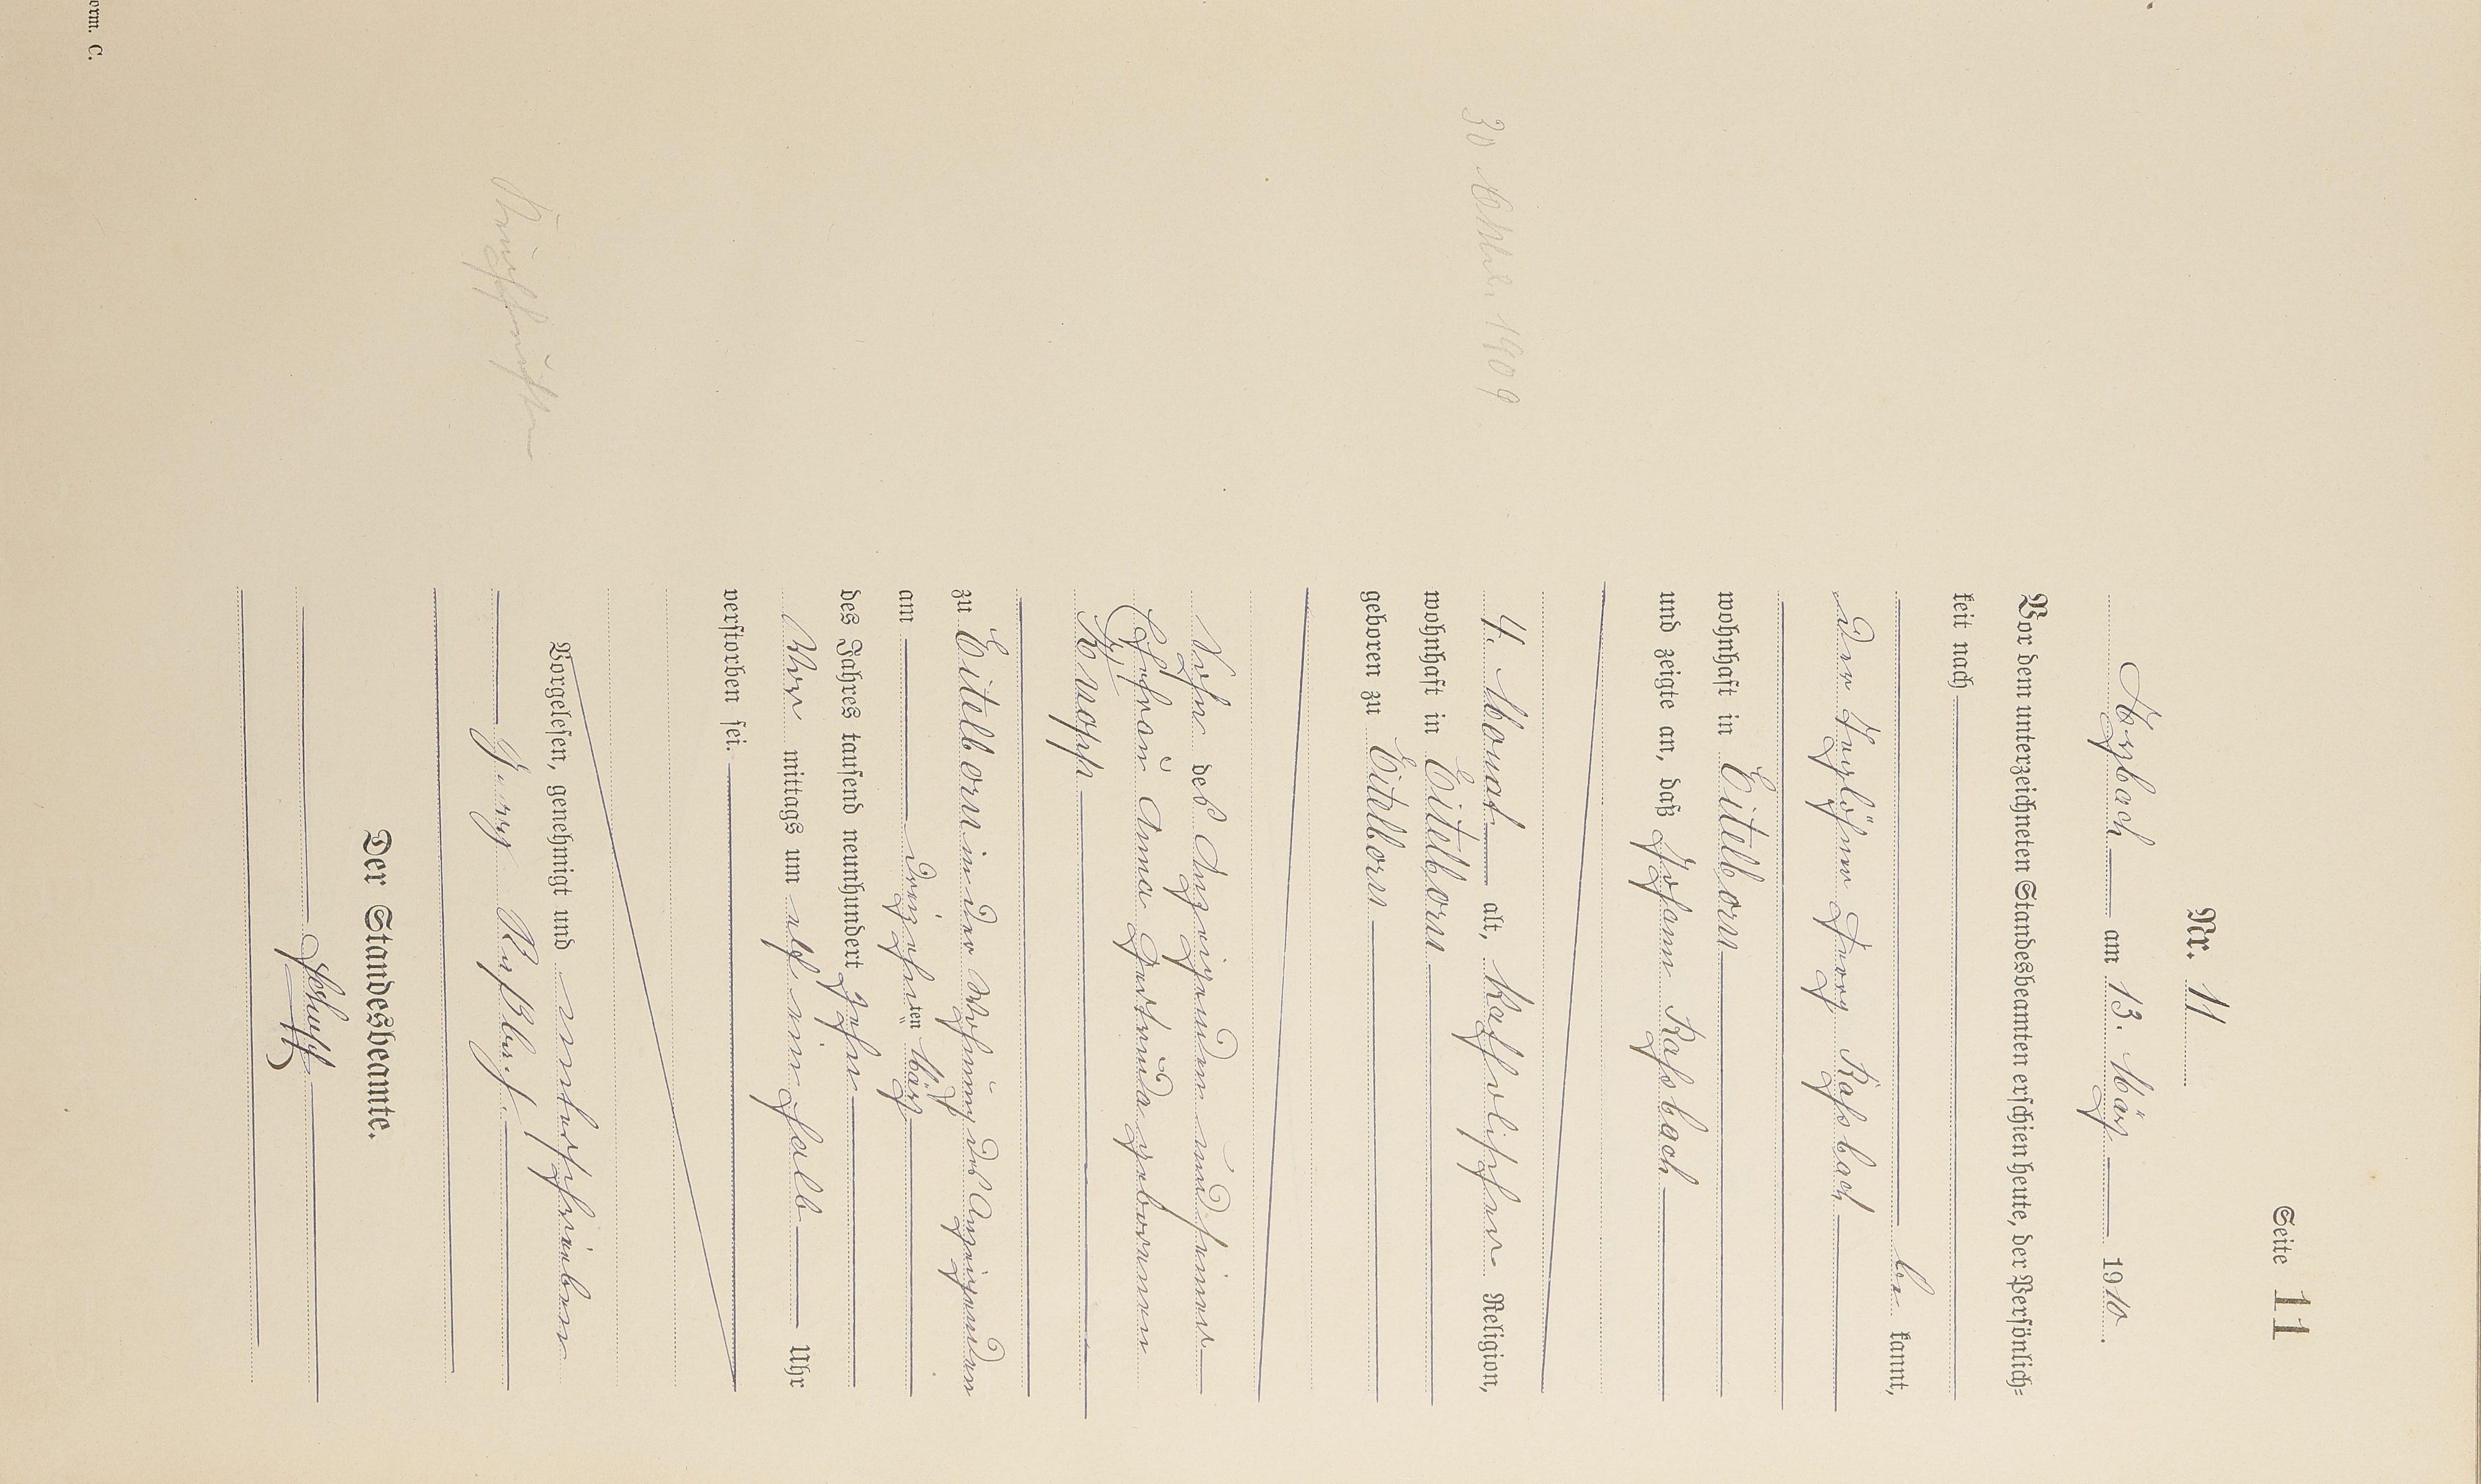 Seite 11
Nr. 11
Arzbach am 13. März 1910.
Vor dem unterzeichneten Standesbeamten erschien heute, der Persönlich=
keit nach
be kannt,
Der Taglöhner Georg Kasbach
wohnhaft in Eitelborn
und zeigte an, daß Johann Kasbach
4 Monat alt, katholischer Religion,
wohnhaft in Eitelborn
geboren zu Eitelborn
30 1909
Sohn des Anzeigenden und seiner
Ehefrau Anna Gertruda geborenen
Knopp
zu Eitelborn in der Wohnung des Anzeigenden
am dreizehnten März
des Jahres tausend neunhundert zehn
Vor mittags um elf ein halb Uhr
verstorben sei.
Vorgelesen, genehmigt und unterschrieben
Georg
Der Standesbeamte.
orm. C.